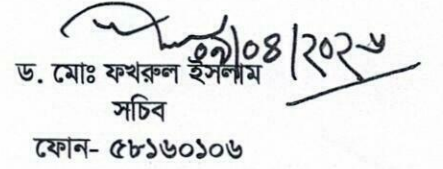 ০৭/০৪/২০২৬
ড. মোঃ ফখরুল ইসলাম
সচিব
ফোন- ৫৮১৬০১০৬